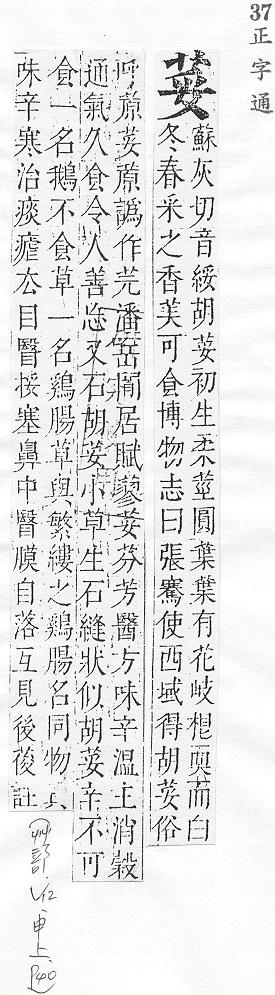 37
正字通
荽
蘇灰切音綏胡荽初生柔莖圓葉葉有花岐根耎而白
冬春采之香美可食博物志曰張騫使西域得胡荽俗
呼蒝荽蒝譌作芫潘岳閒居賦蓼荽芬芳醫方味辛溫主消穀
通氣久食令人善忘又石胡荽小草生石縫狀似胡荽辛不可
食一名鵝不食草一名鷄腸草與繁縷之鷄腸名同物
味辛寒治痰瘧去目瞖挼塞鼻中瞖膜自落互見後葰註
(艸部) V12 申上 P40